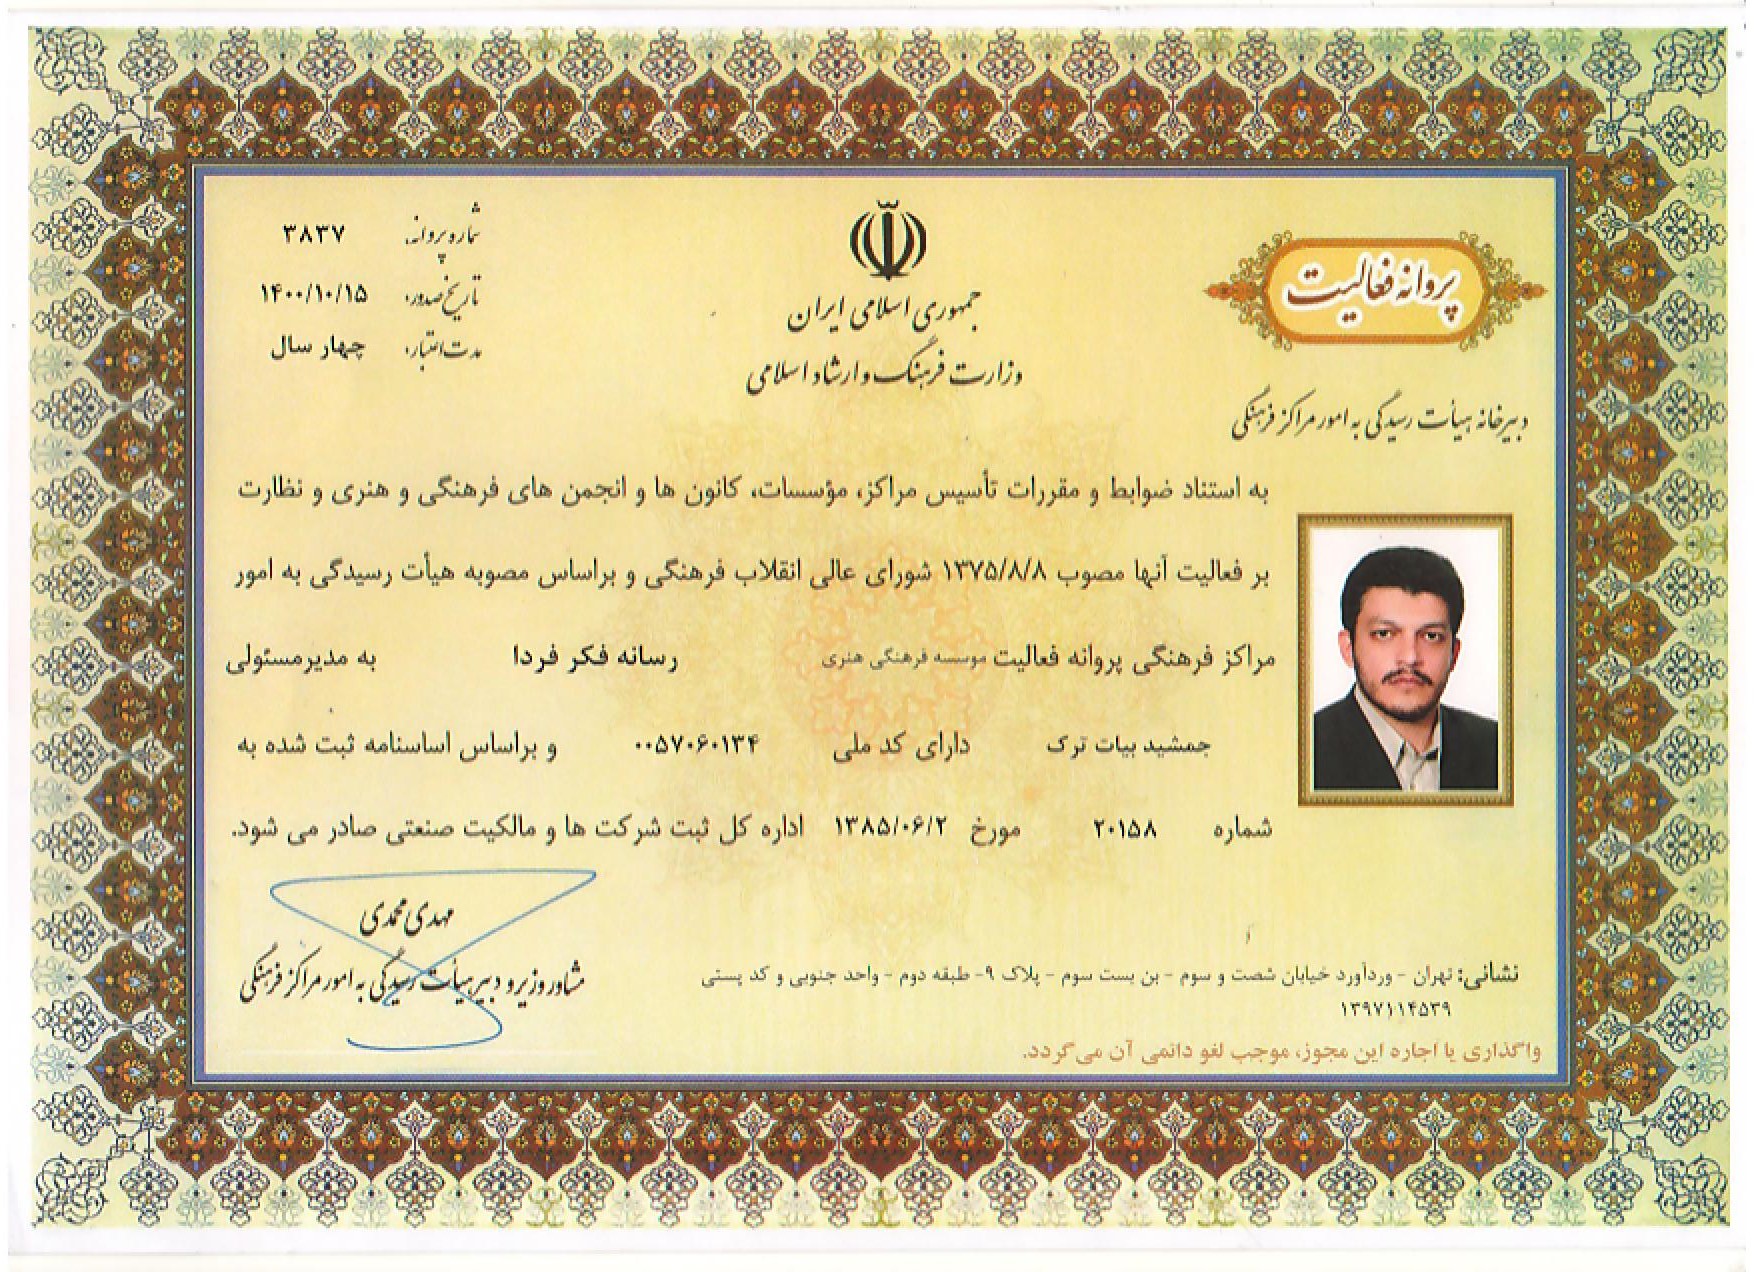 پروانه فعالیت
دبیرخانه هیأت رسیدگی به امور مراکز فرهنگی
جمهوری اسلامی ایران
وزارت فرهنگ و ارشاد اسلامی
شماره پروانه: ۳۸۳۷
تاریخ صدور: ۱۴۰۰/۱۰/۱۵
مدت اعتبار: چهار سال
به استناد ضوابط و مقررات تأسیس مراکز، مؤسسات، کانون ها و انجمن های فرهنگی و هنری و نظارت
بر فعالیت آنها مصوب ۱۳۷۵/۸/۸ شورای عالی انقلاب فرهنگی و براساس مصوبه هیأت رسیدگی به امور
مراکز فرهنگی پروانه فعالیت موسسه فرهنگی هنری رسانه فکر فردا به مدیرمسئولی
جمشید بیات ترک دارای کد ملی ۰۰۵۷۰۶۰۱۳۴ و براساس اساسنامه ثبت شده به
شماره ۲۰۱۵۸ مورخ ۱۳۸۵/۰۶/۲ اداره کل ثبت شرکت ها و مالکیت صنعتی صادر می شود.
مهدی محمدی
مشاور وزیر و دبیر هیأت رسیدگی به امور مراکز فرهنگی
نشانی: تهران - وردآورد خیابان شصت و سوم - بن بست سوم - پلاک ۹- طبقه دوم - واحد جنوبی و کد پستی
۱۳۹۷۱۱۴۵۳۹
واگذاری یا اجاره این مجوز، موجب لغو دائمی آن می گردد.